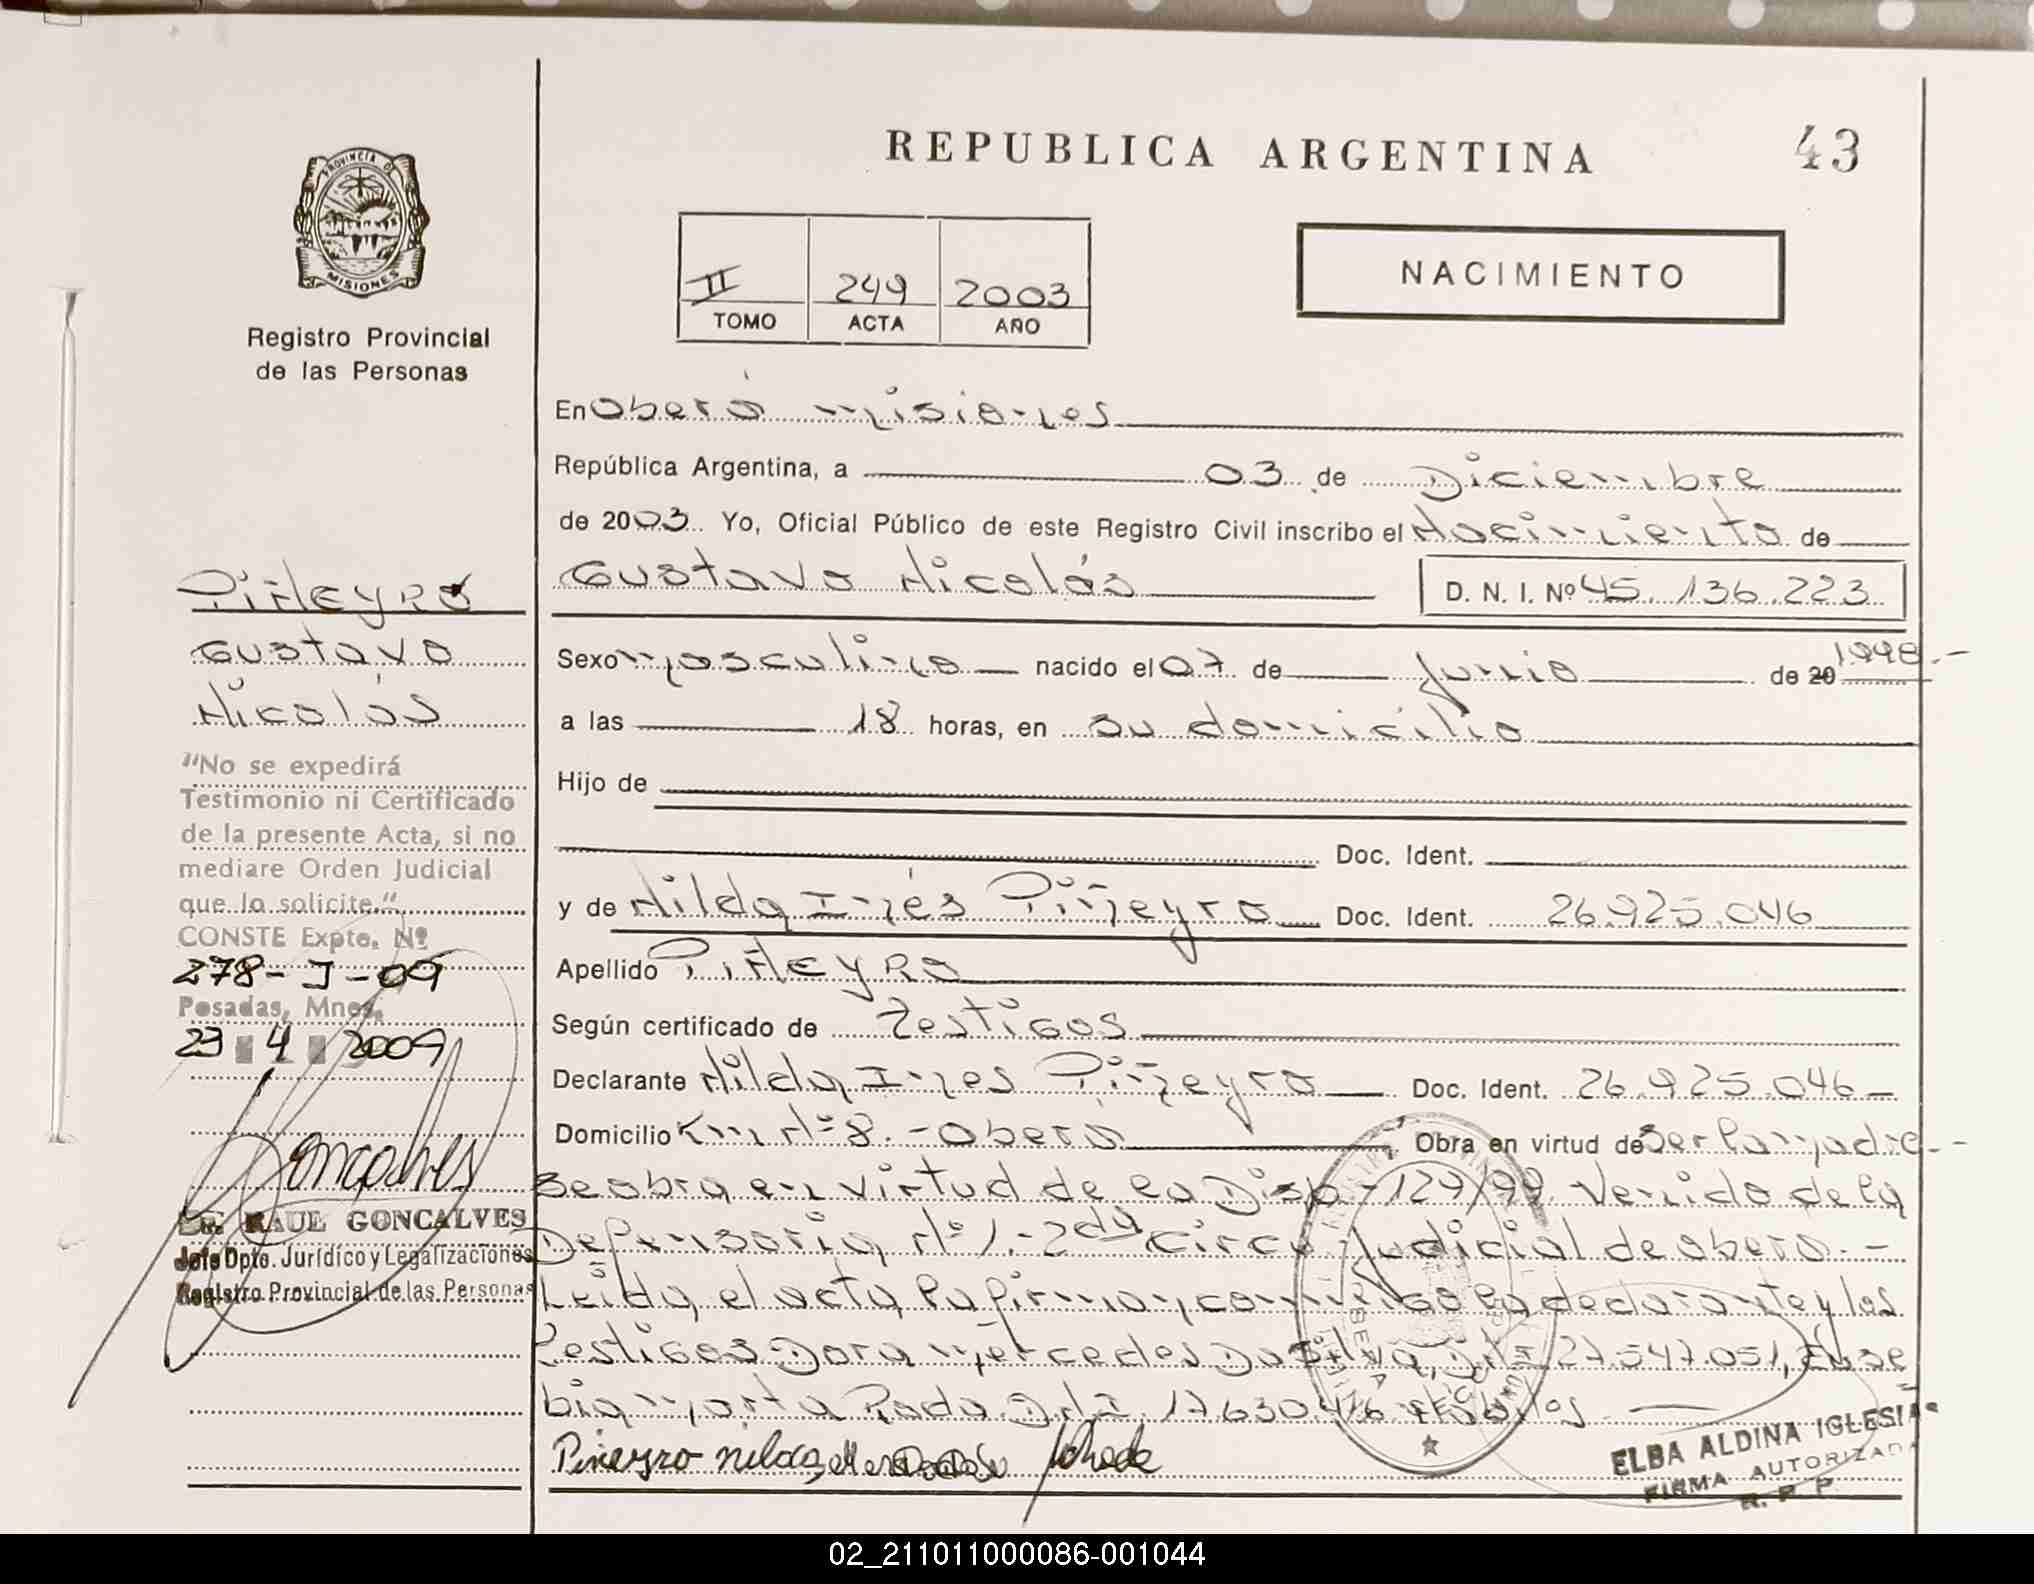 REPUBLICA ARGENTINA
43
PROVINCIA DE
MISIONES
Registro Provincial
de las Personas
II 249 2003
TOMO ACTA AÑO
NACIMIENTO
En Oberá Misiones
República Argentina, a 03 de Diciembre
de 2003 Yo, Oficial Público de este Registro Civil inscribo el Nacimiento de
Gustavo Nicolás
D. N. I. Nº 45.136.223
Sexo Masculino nacido el 07 de Junio de 20 1998.-
a las 18 horas, en su domicilio
Hijo de
Doc. Ident.
y de Nilda Inés Piñeyro Doc. Ident. 26.925.046
Apellido PIÑEYRO
Según certificado de Testigos
Declarante Nilda Ines Piñeyro Doc. Ident. 26.925.046
Domicilio Km Nº 8.- Oberá Obra en virtud de Ser la madre.-
Se obra en virtud de la Disp. 129/99 Venido de la
Defensoria Nº 1.- 2da Circ. Judicial de Oberá.-
Leida el acta la firman conmigo la declarante y los
Testigos Dora Mercedes Da Silva, DNI 27.547.051, Euse
bia Marta Roda DNI 17.630.416
Piñeyro nilda
ELBA ALDINA IGLESIAS
FIRMA AUTORIZADA
R. P. P.
PIÑEYRO
Gustavo
Nicolás
"No se expedirá
Testimonio ni Certificado
de la presente Acta, si no
mediare Orden Judicial
que lo solicite."
CONSTE Expte. Nº
278-J-09
Posadas, Mnes.
23 4 2009
Goncalves
Dr. RAUL GONCALVES
Jefe Dpto. Jurídico y Legalizaciones
Registro Provincial de las Personas
02_211011000086-001044